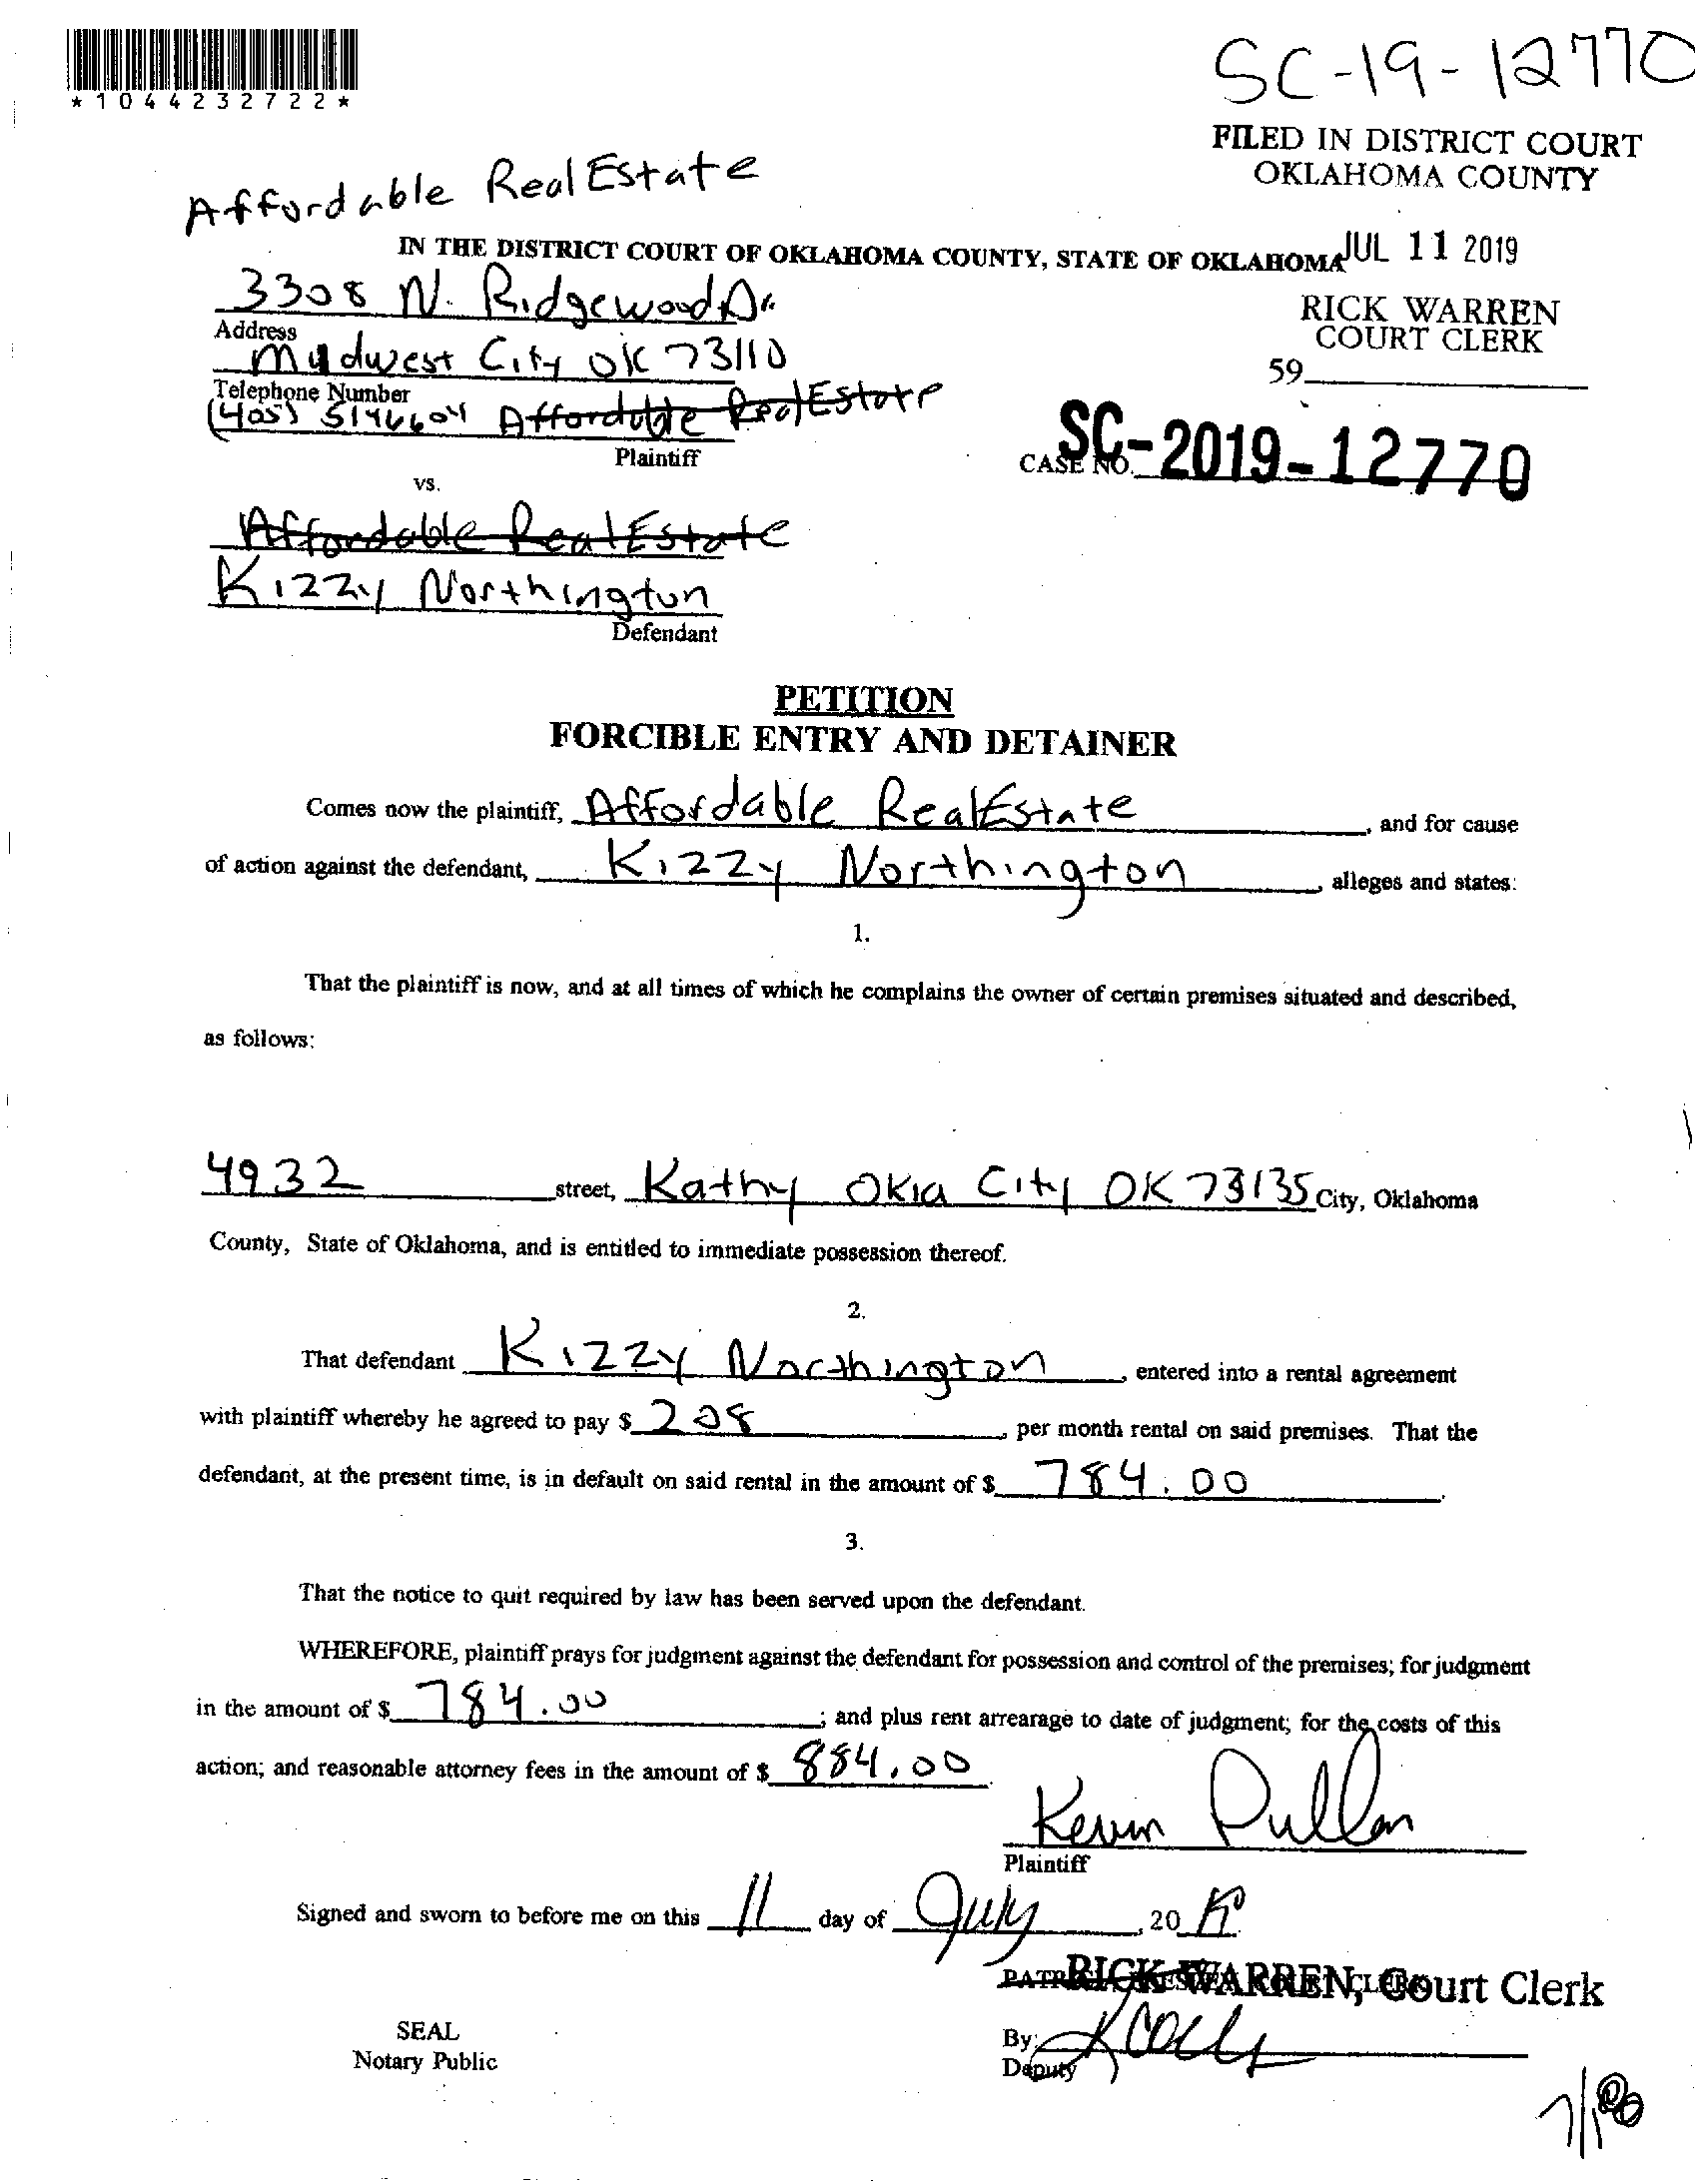 *1044232722*
SC-19-12770
FILED IN DISTRICT COURT
OKLAHOMA COUNTY
Affordable RealEstate
IN THE DISTRICT COURT OF OKLAHOMA COUNTY, STATE OF OKLAHOMA
JUL 11 2019
3308 N. Ridgewood Dr
RICK WARREN
COURT CLERK
Address
Midwest City OK 73110
59
Telephone Number
(405) 5146604 Affordable RealEstate
Plaintiff
CASE NO. SC-2019-12770
vs.
Affordable RealEstate
Kizzy Northington
Defendant
PETITION
FORCIBLE ENTRY AND DETAINER
Comes now the plaintiff, Affordable RealEstate, and for cause
of action against the defendant, Kizzy Northington, alleges and states:
1.
That the plaintiff is now, and at all times of which he complains the owner of certain premises situated and described,
as follows:
4932 street, Kathy Okla City OK 73135 City, Oklahoma
County, State of Oklahoma, and is entitled to immediate possession thereof.
2.
That defendant Kizzy Northington, entered into a rental agreement
with plaintiff whereby he agreed to pay $ 208, per month rental on said premises. That the
defendant, at the present time, is in default on said rental in the amount of $ 784.00.
3.
That the notice to quit required by law has been served upon the defendant.
WHEREFORE, plaintiff prays for judgment against the defendant for possession and control of the premises; for judgment
in the amount of $ 784.00; and plus rent arrearage to date of judgment; for the costs of this
action; and reasonable attorney fees in the amount of $ 884.00.
Kevin Pullen
Plaintiff
Signed and sworn to before me on this 11 day of July, 20
RICK WARREN, Court Clerk
SEAL
Notary Public
By:
Deputy